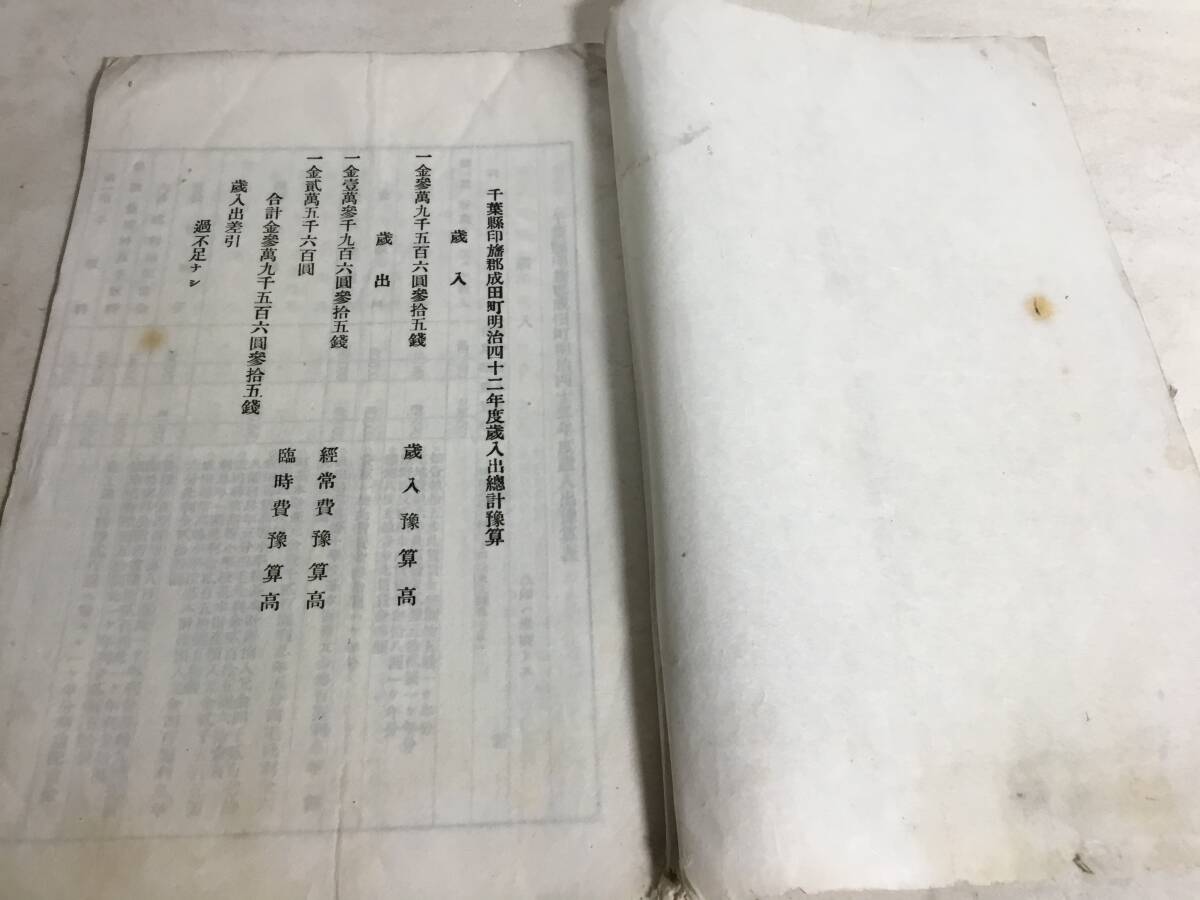 千葉縣印旛郡成田町明治四十二年度歲入出總計豫算
歲入
一金參萬九千五百六圓參拾五錢 歲入豫算高
歲出
一金壹萬參千九百六圓參拾五錢 經常費豫算高
一金貳萬五千六百圓 臨時費豫算高
合計金參萬九千五百六圓參拾五錢
歲入出差引
過不足ナシ